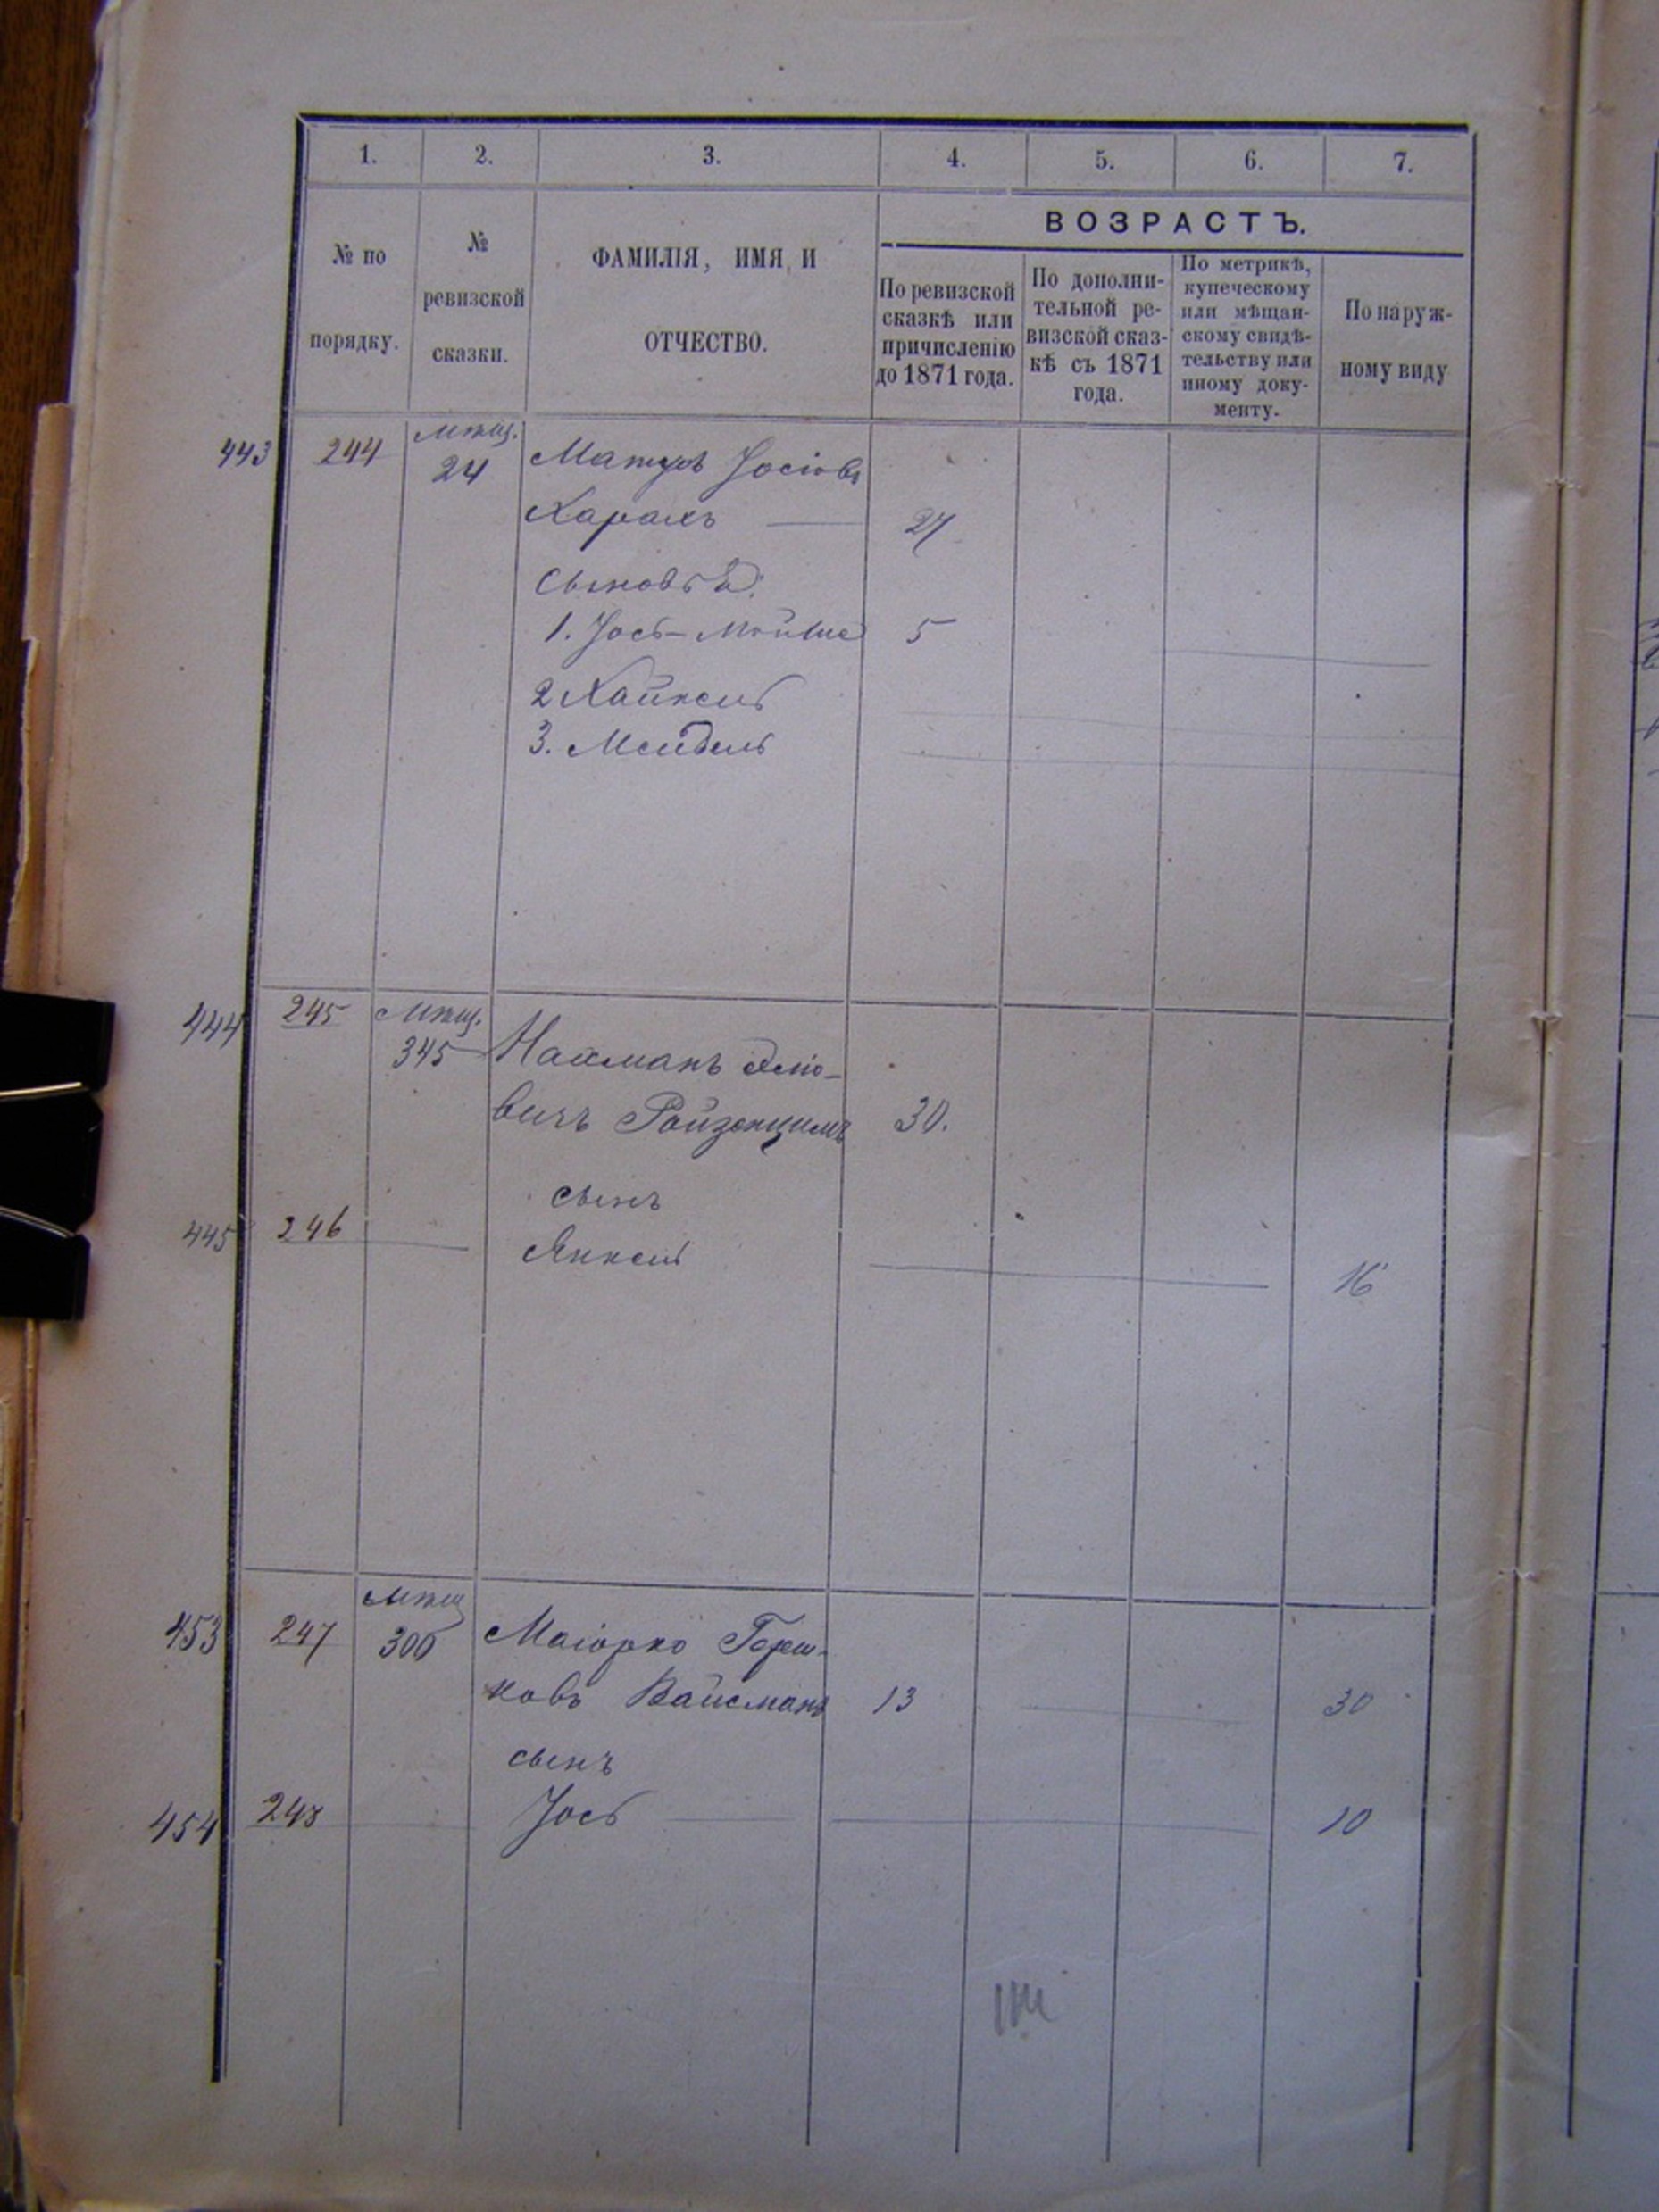 1. 2. 3. 4. 5. 6. 7.
№ по порядку.
№ ревизской сказки.
ФАМИЛІЯ, ИМЯ И
ОТЧЕСТВО.
ВОЗРАСТЪ.
По ревизской
сказкѣ или
причисленію
до 1871 года.
По дополни-
тельной ре-
визской сказ-
кѣ съ 1871
года.
По метрикѣ,
купеческому
или мѣщан-
скому свидѣ-
тельству или
иному доку-
менту.
По наруж-
ному виду
443 244 24 Іосіовъ
27
Сыновья:
1. Іось-Мойше 5
2 Хайкель
3. Мендель
444 245 345 Нахманъ
вичъ 30.
сынъ
445 246 Янкель 16
453 247 300 Маіорко Герш-
ковъ Вайсманъ 13 30
сынъ
454 248 Іось 10